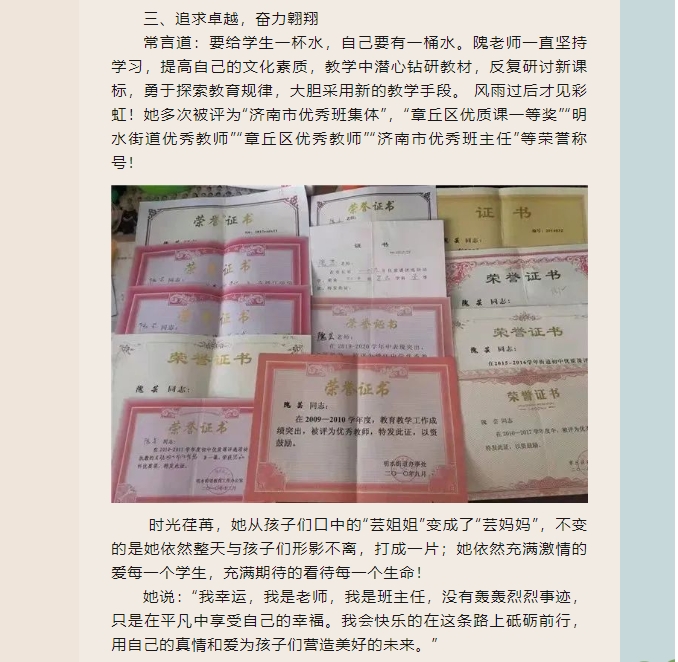 三、追求卓越，奋力翱翔
常言道：要给学生一杯水，自己要有一桶水。隗老师一直坚持
学习，提高自己的文化素质，教学中潜心钻研教材，反复研讨新课
标，勇于探索教育规律，大胆采用新的教学手段。 风雨过后才见彩
虹！她多次被评为“济南市优秀班集体”，“章丘区优质课一等奖”“明
水街道优秀教师”“章丘区优秀教师”“济南市优秀班主任”等荣誉称
号！
荣誉证书
荣誉证书
证 书
隗 芸 同志：
荣誉证书
证 书
荣誉证书
隗 芸 同志：
荣誉证书
荣誉证书
隗芸老师：
在2019-2020学年中表现突出，
荣誉证书
荣誉证书
隗 芸 同志：
荣誉证书
隗 芸 同志：
在2009—2010学年度，教育教学工作成
绩突出，被评为优秀教师，特发此证，以资
鼓励。
明水街道办事处
二〇一〇年九月
荣誉证书
隗 芸 同志：
荣誉证书
同志：
时光荏苒，她从孩子们口中的“芸姐姐”变成了“芸妈妈”，不变
的是她依然整天与孩子们形影不离，打成一片；她依然充满激情的
爱每一个学生，充满期待的看待每一个生命！
她说：“我幸运，我是老师，我是班主任，没有轰轰烈烈事迹，
只是在平凡中享受自己的幸福。我会快乐的在这条路上砥砺前行，
用自己的真情和爱为孩子们营造美好的未来。”